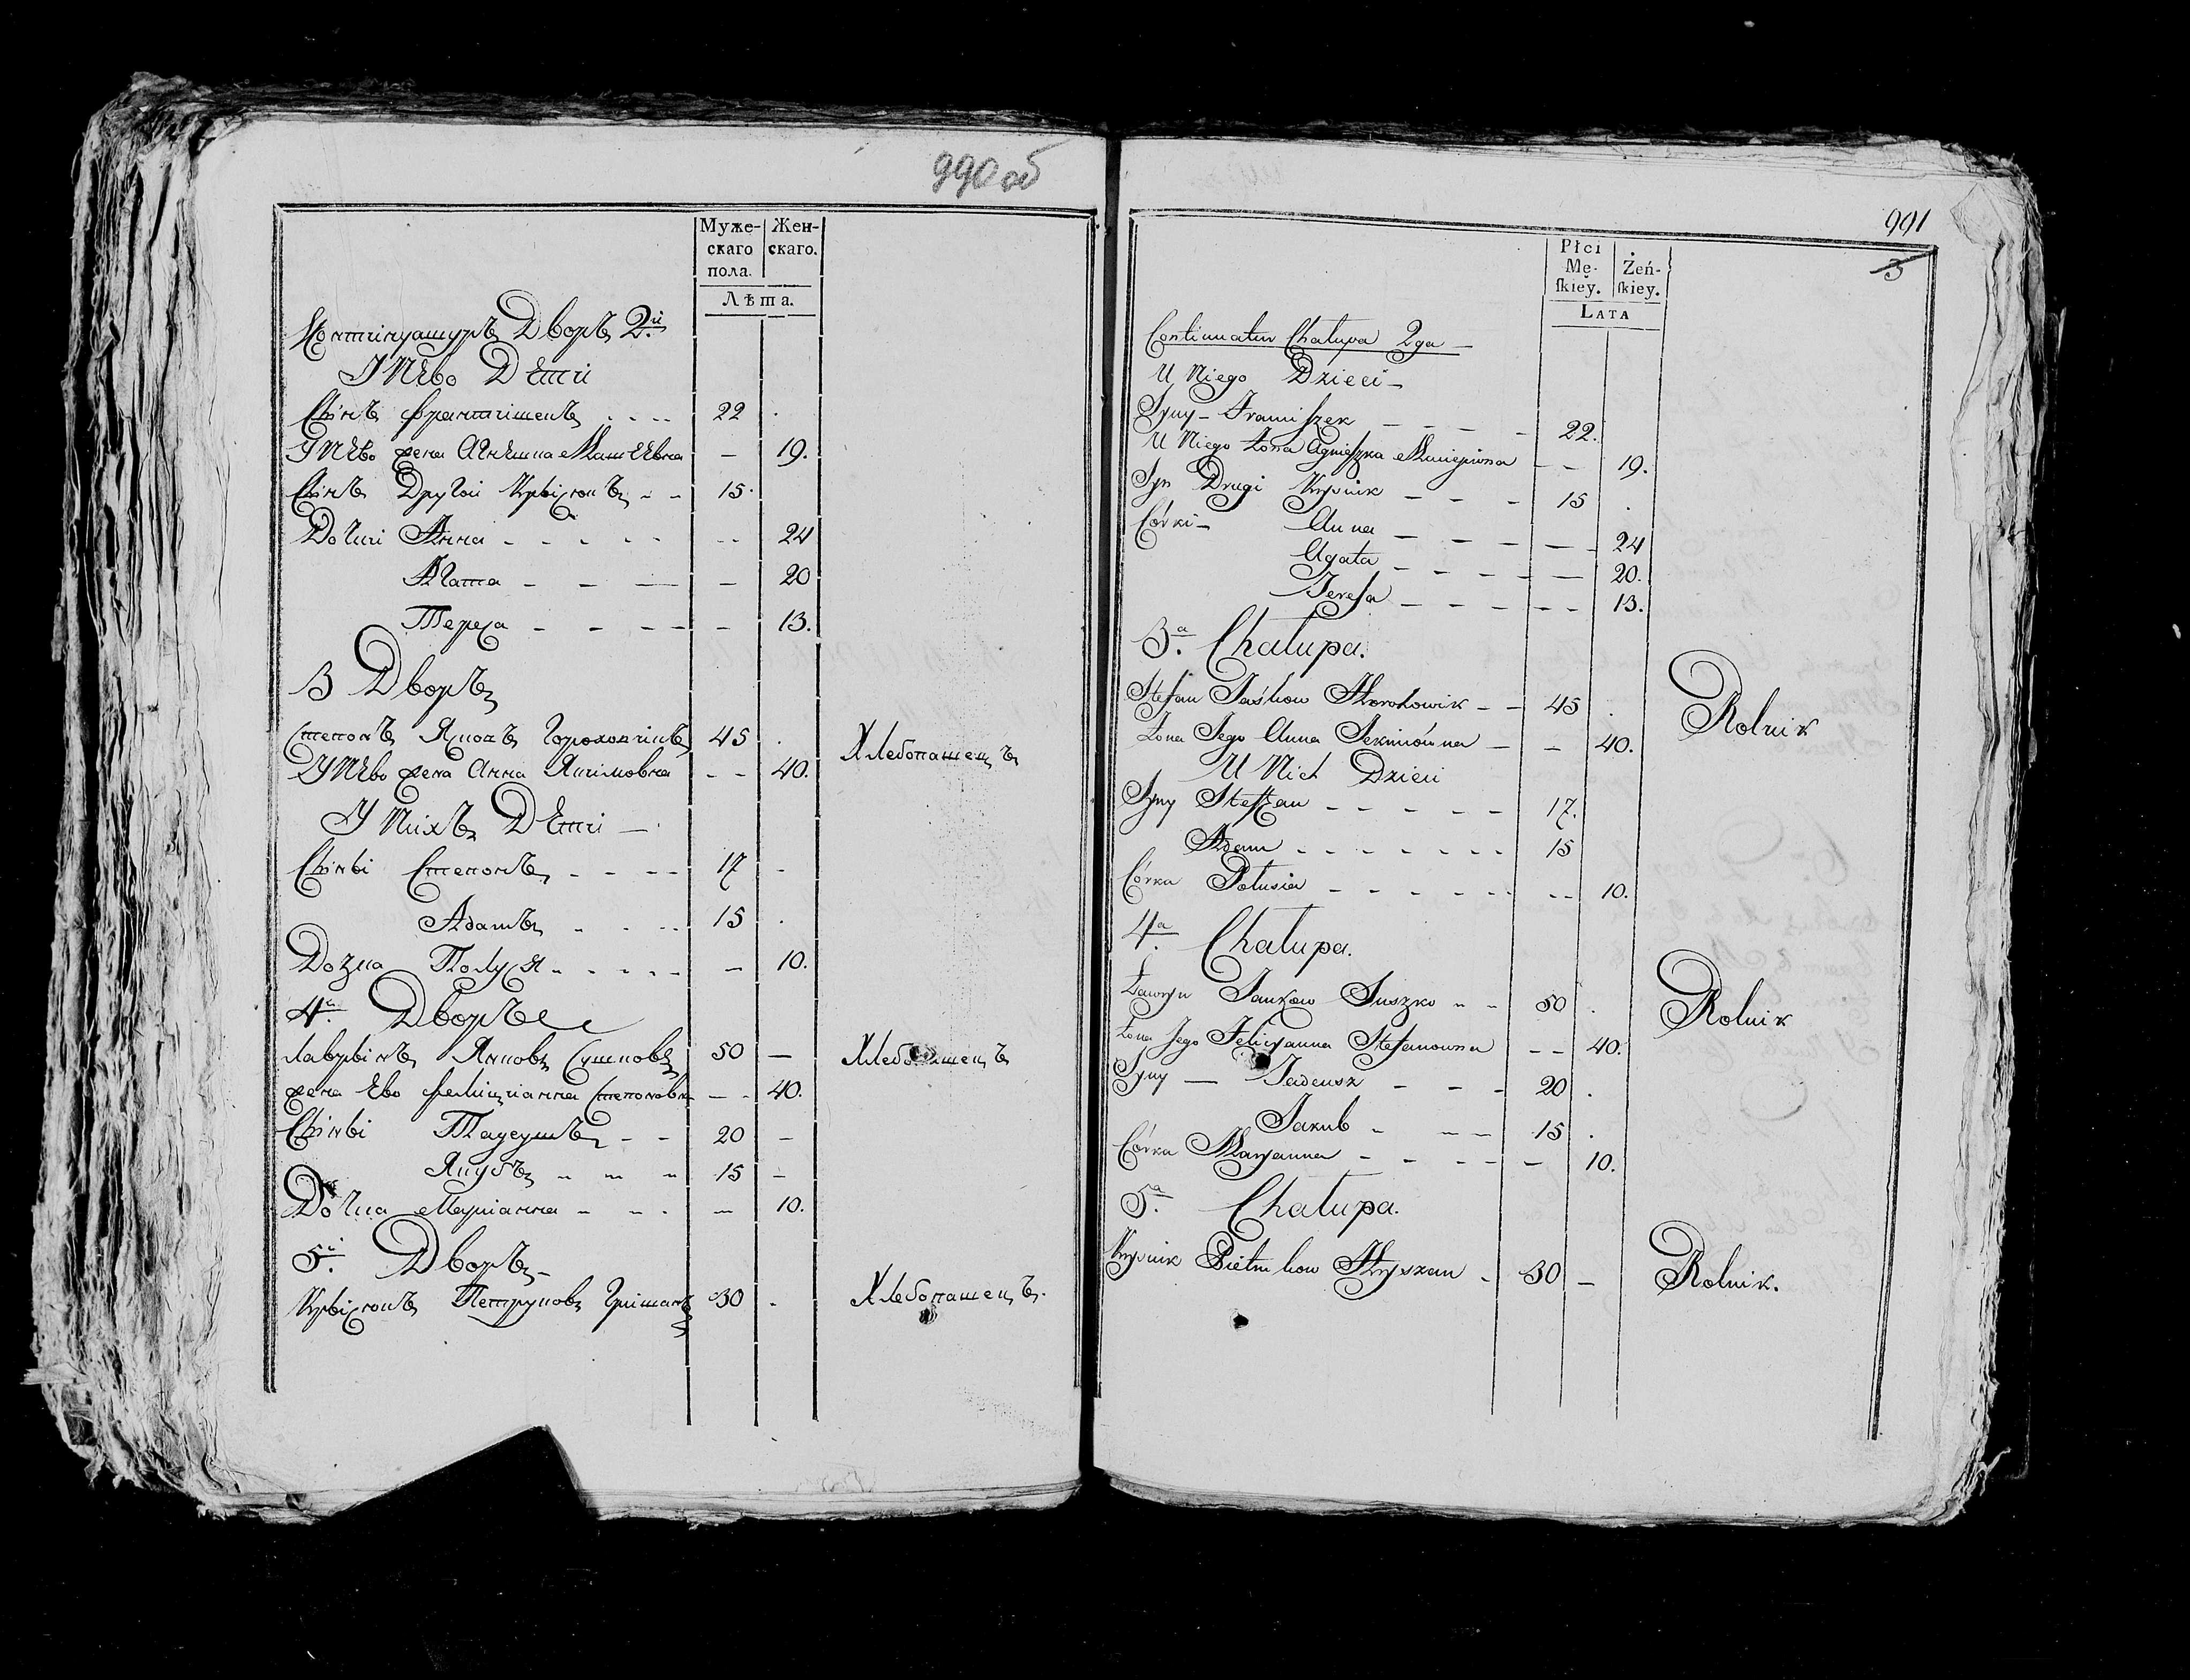 990 об
Муже- Жен-
скаго скаго.
пола.
Лѣта.
Континуатуръ Дворъ 2й
У Нево Дети
Сынъ Францишекъ 22
У Нево жена Агнешка Матеевна – 19.
Сынъ Другой Крысюкъ 15
Дочки Анна 24
Агата – 20
Тереса – 13.
3 Дворъ
Степонъ Яцковъ 45 Хлебопашецъ
У Нево жена Анна Якимовна 40.
У Нихъ Дети
Сыны Степонъ 17
Адамъ 15
Дочка Полуся – 10.
4й Дворъ
Лаврынъ Янковъ Сушковъ 50 – Хлебопашецъ
жена Ево Фелициянна Степоновна – 40.
Сыны Тадеушъ 20 –
Якубъ 15 –
Дочка Марианна – 10.
5й Дворъ
Крысюкъ Петруковъ 30 Хлебопашецъ.
991
3
Płci
Mę- Żeń-
ſkiey. ſkiey.
LATA
Continuatur Chałupa 2ga –
U Niego Dzieci –
Syny – Franciszek 22.
U Niego Żona Agnieszka Maciejowna 19.
Syn Drugi Krysiuk 15
Córki – Anna 24
Agata 20.
Teresa 13.
3a Chałupa.
Stefan Jaśkow 45 Rolnik
Żona Jego Anna Jekimówna – 40.
U Nich Dzieci
Syny Stefan 17.
Adam 15
Córka Połusia 10.
4a Chałupa.
Ławryn Jankow Suszko 50 Rolnik
Żona Jego Felicyanna Stefanowna 40.
Syny — Tadeusz 20
Jakub 15
Córka Maryanna – 10.
5a Chałupa.
Krysiuk Pietrukow 30 – Rolnik.